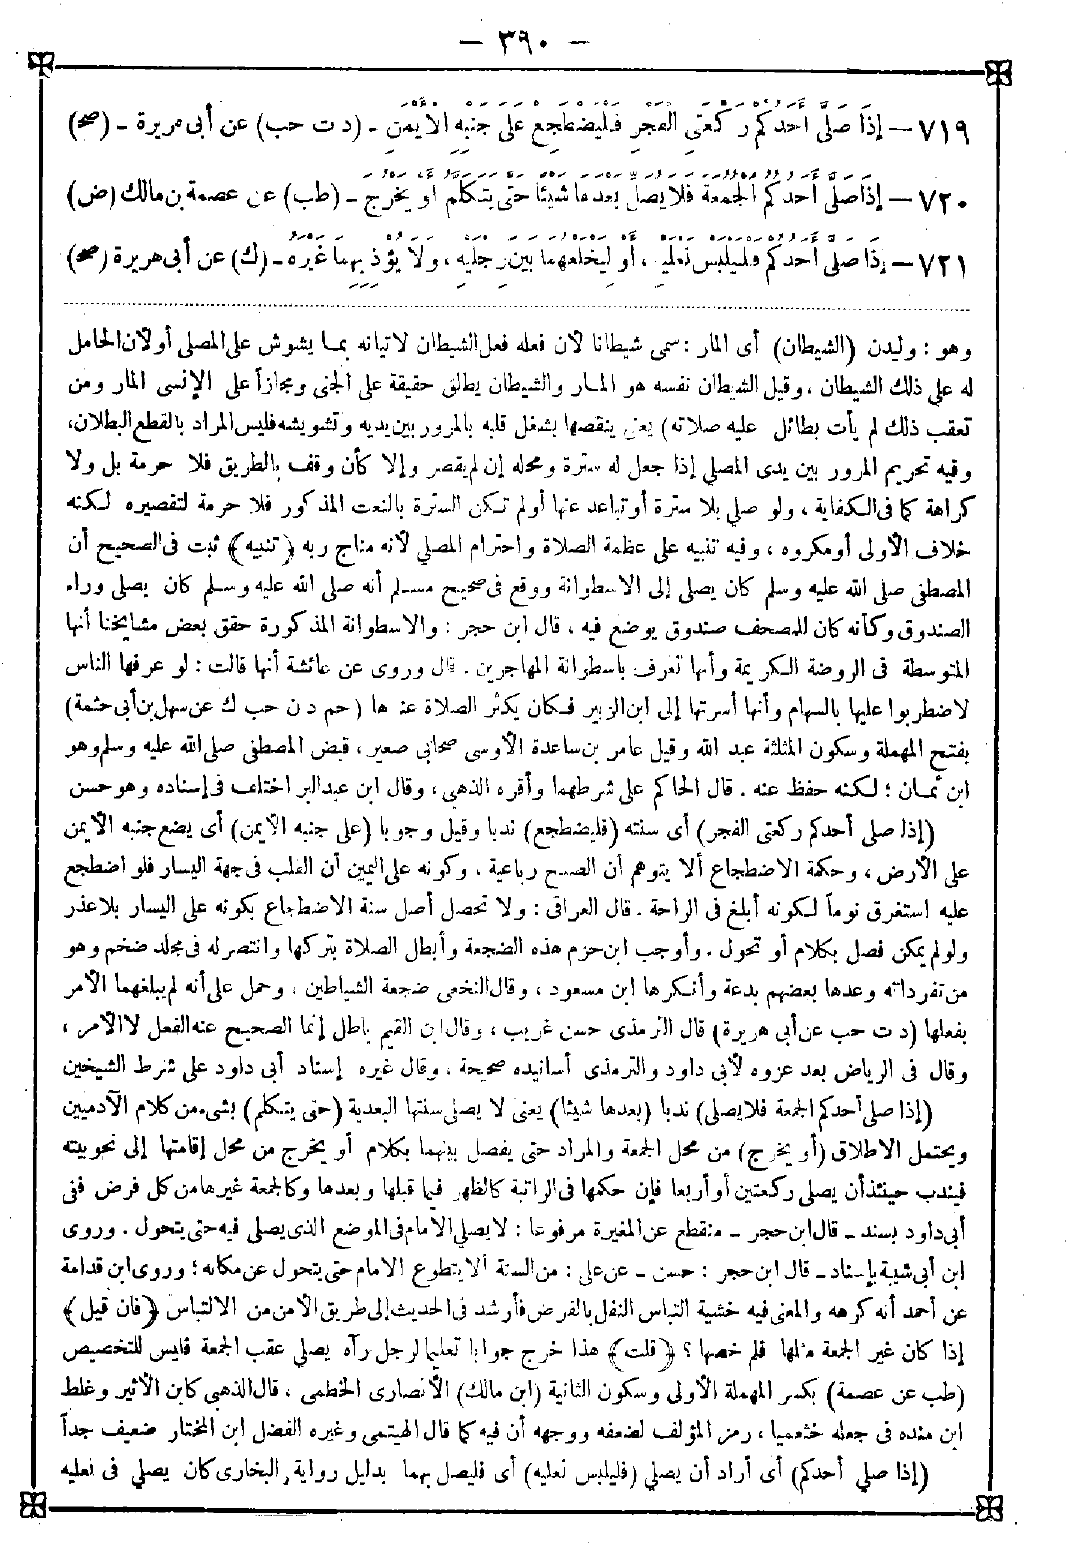 — ٣٩٠ —
٧١٩ — إِذَا صَلَّى أَحَدُكُمْ رَكْعَتَيِ الْفَجْرِ فَلْيَضْطَجِعْ عَلَى جَنْبِهِ الْأَيْمَنِ - (د ت حب) عن أبي هريرة - (صح)
٧٢٠ — إِذَا صَلَّى أَحَدُكُمُ الْجُمُعَةَ فَلَا يُصَلِّ بَعْدَهَا شَيْئًا حَتَّى يَتَكَلَّمَ أَوْ يَخْرُجَ - (طب) عن عصمة بن مالك (ض)
٧٢١ — إِذَا صَلَّى أَحَدُكُمْ فَلْيَلْبَسْ نَعْلَيْهِ ، أَوْ لِيَخْلَعْهُمَا بَيْنَ رِجْلَيْهِ ، وَلَا يُؤْذِ بِهِمَا غَيْرَهُ - (ك) عن أبي هريرة (صح)
وهو : وليدن (الشيطان) أى المار : سمى شيطانا لأن فعله فعل الشيطان لاتيانه بما يشوش على المصلى أو لأن الحامل
له على ذلك الشيطان ، وقيل الشيطان نفسه هو المار والشيطان يطلق حقيقة على الجنى ومجازاً على الإنسى المار ومن
تعقب ذلك لم يأت بطائل عليه صلاته) يعنى ينقصها بشغل قلبه بالمرور بين يديه وتشويشه فليس المراد بالقطع البطلان،
وفيه تحريم المرور بين يدى المصلي إذا جعل له سترة ومحله إن لم يقصر وإلا كأن وقف بالطريق فلا حرمة بل ولا
كراهة كما فى الكفاية ، ولو صلي بلا سترة أو تباعد عنها أولم تكن السترة بالنعت المذكور فلا حرمة لتقصيره لكنه
خلاف الأولى أو مكروه ، وفيه تنبيه على عظمة الصلاة واحترام المصلي لأنه مناج ربه ﴿تنبيه﴾ ثبت فى الصحيح أن
المصطفى صلى الله عليه وسلم كان يصلي إلى الاسطوانة ووقع فى صحيح مسلم أنه صلى الله عليه وسلم كان يصلى وراء
الصندوق وكأنه كان للمصحف صندوق يوضع فيه ، قال ابن حجر : والاسطوانة المذكورة حقق بعض مشايخنا أنها
المتوسطة فى الروضة الكريمة وأنها تعرف باسطوانة المهاجرين . قال وروى عن عائشة أنها قالت : لو عرفها الناس
لاضطربوا عليها بالسهام وأنها أسرتها إلى ابن الزبير فكان يكثر الصلاة عندها (حم د ن حب ك عن سهل بن أبى حثمة)
بفتح المهملة وسكون المثلثة عبد الله وقيل عامر بن ساعدة الأوسى صحابى صغير ، قبض المصطفى صلى الله عليه وسلم وهو
ابن ثمان ؛ لكنه حفظ عنه . قال الحاكم على شرطهما وأقره الذهبى ، وقال ابن عبد البر اختلف فى إسناده وهو حسن
(إذا صلى أحدكم ركعتى الفجر) أى سنته (فليضطجع) ندبا وقيل وجوبا (على جنبه الأيمن) أى يضع جنبه الأيمن
على الأرض ، وحكمة الاضطجاع ألا يتوهم أن الصبح رباعية ، وكونه على اليمين أن القلب فى جهة اليسار فلو اضطجع
عليه استغرق نوماً لكونه أبلغ فى الراحة . قال العراقى : ولا تحصل أصل سنة الاضطجاع بكونه على اليسار بلا عذر
ولو لم يمكن فصل بكلام أو تحول . وأوجب ابن حزم هذه الضجعة وأبطل الصلاة بتركها وانتصر له فى مجلد ضخم وهو
من تفرداته وعدها بعضهم بدعة وأنكرها ابن مسعود ، وقال النخعى ضجعة الشياطين ، وحمل على أنه لم يبلغهما الأمر
بفعلها (د ت حب عن أبى هريرة) قال الترمذى حسن غريب ، وقال ابن القيم باطل إنما الصحيح عنه الفعل لا الأمر ،
وقال فى الرياض بعد عزوه لأبى داود والترمذى أسانيده صحيحة ، وقال غيره إسناد أبى داود على شرط الشيخين
(إذا صلى أحدكم الجمعة فلا يصلى) ندبا (بعدها شيئا) يعنى لا يصلى سنتها البعدية (حتى يتكلم) بشىء من كلام الآدميين
ويحتمل الاطلاق (أو يخرج) من محل الجمعة والمراد حتى يفصل بينهما بكلام أو يخرج من محل إقامتها إلى نحو بيته
فيندب حينئذ أن يصلى ركعتين أو أربعا فإن حكمها فى الراتبة كالظهر فيما قبلها وبعدها وكالجمعة غيرها من كل فرض ففى
أبى داود بسند - قال ابن حجر - منقطع عن المغيرة مرفوعا : لا يصلي الأمام فى الموضع الذى يصلى فيه حتى يتحول . وروى
ابن أبى شيبة بإسناد - قال ابن حجر : حسن - عن على : من السنة ألا يتطوع الامام حتى يتحول عن مكانه ؛ وروى ابن قدامة
عن أحمد أنه كرهه والمعنى فيه خشية التباس النفل بالفرض فأرشد فى الحديث إلى طريق الأمن من الالتباس ﴿فان قيل﴾
إذا كان غير الجمعة مثلها فلم خصها ؟ ﴿قلت﴾ هذا خرج جوابا تعليما لرجل رآه يصلي عقب الجمعة فليس للتخصيص
(طب عن عصمة) بكسر المهملة الأولى وسكون الثانية (ابن مالك) الأنصارى الخطمى ، قال الذهبى كابن الأثير وغلط
ابن منده فى جعله خثعميا ، رمز المؤلف لضعفه ووجهه أن فيه كما قال الهيتمى وغيره الفضل ابن المختار ضعيف جداً
(إذا صلي أحدكم) أى أراد أن يصلي (فليلبس نعليه) أى فليصل بهما بدليل رواية البخارى كان يصلي فى نعليه